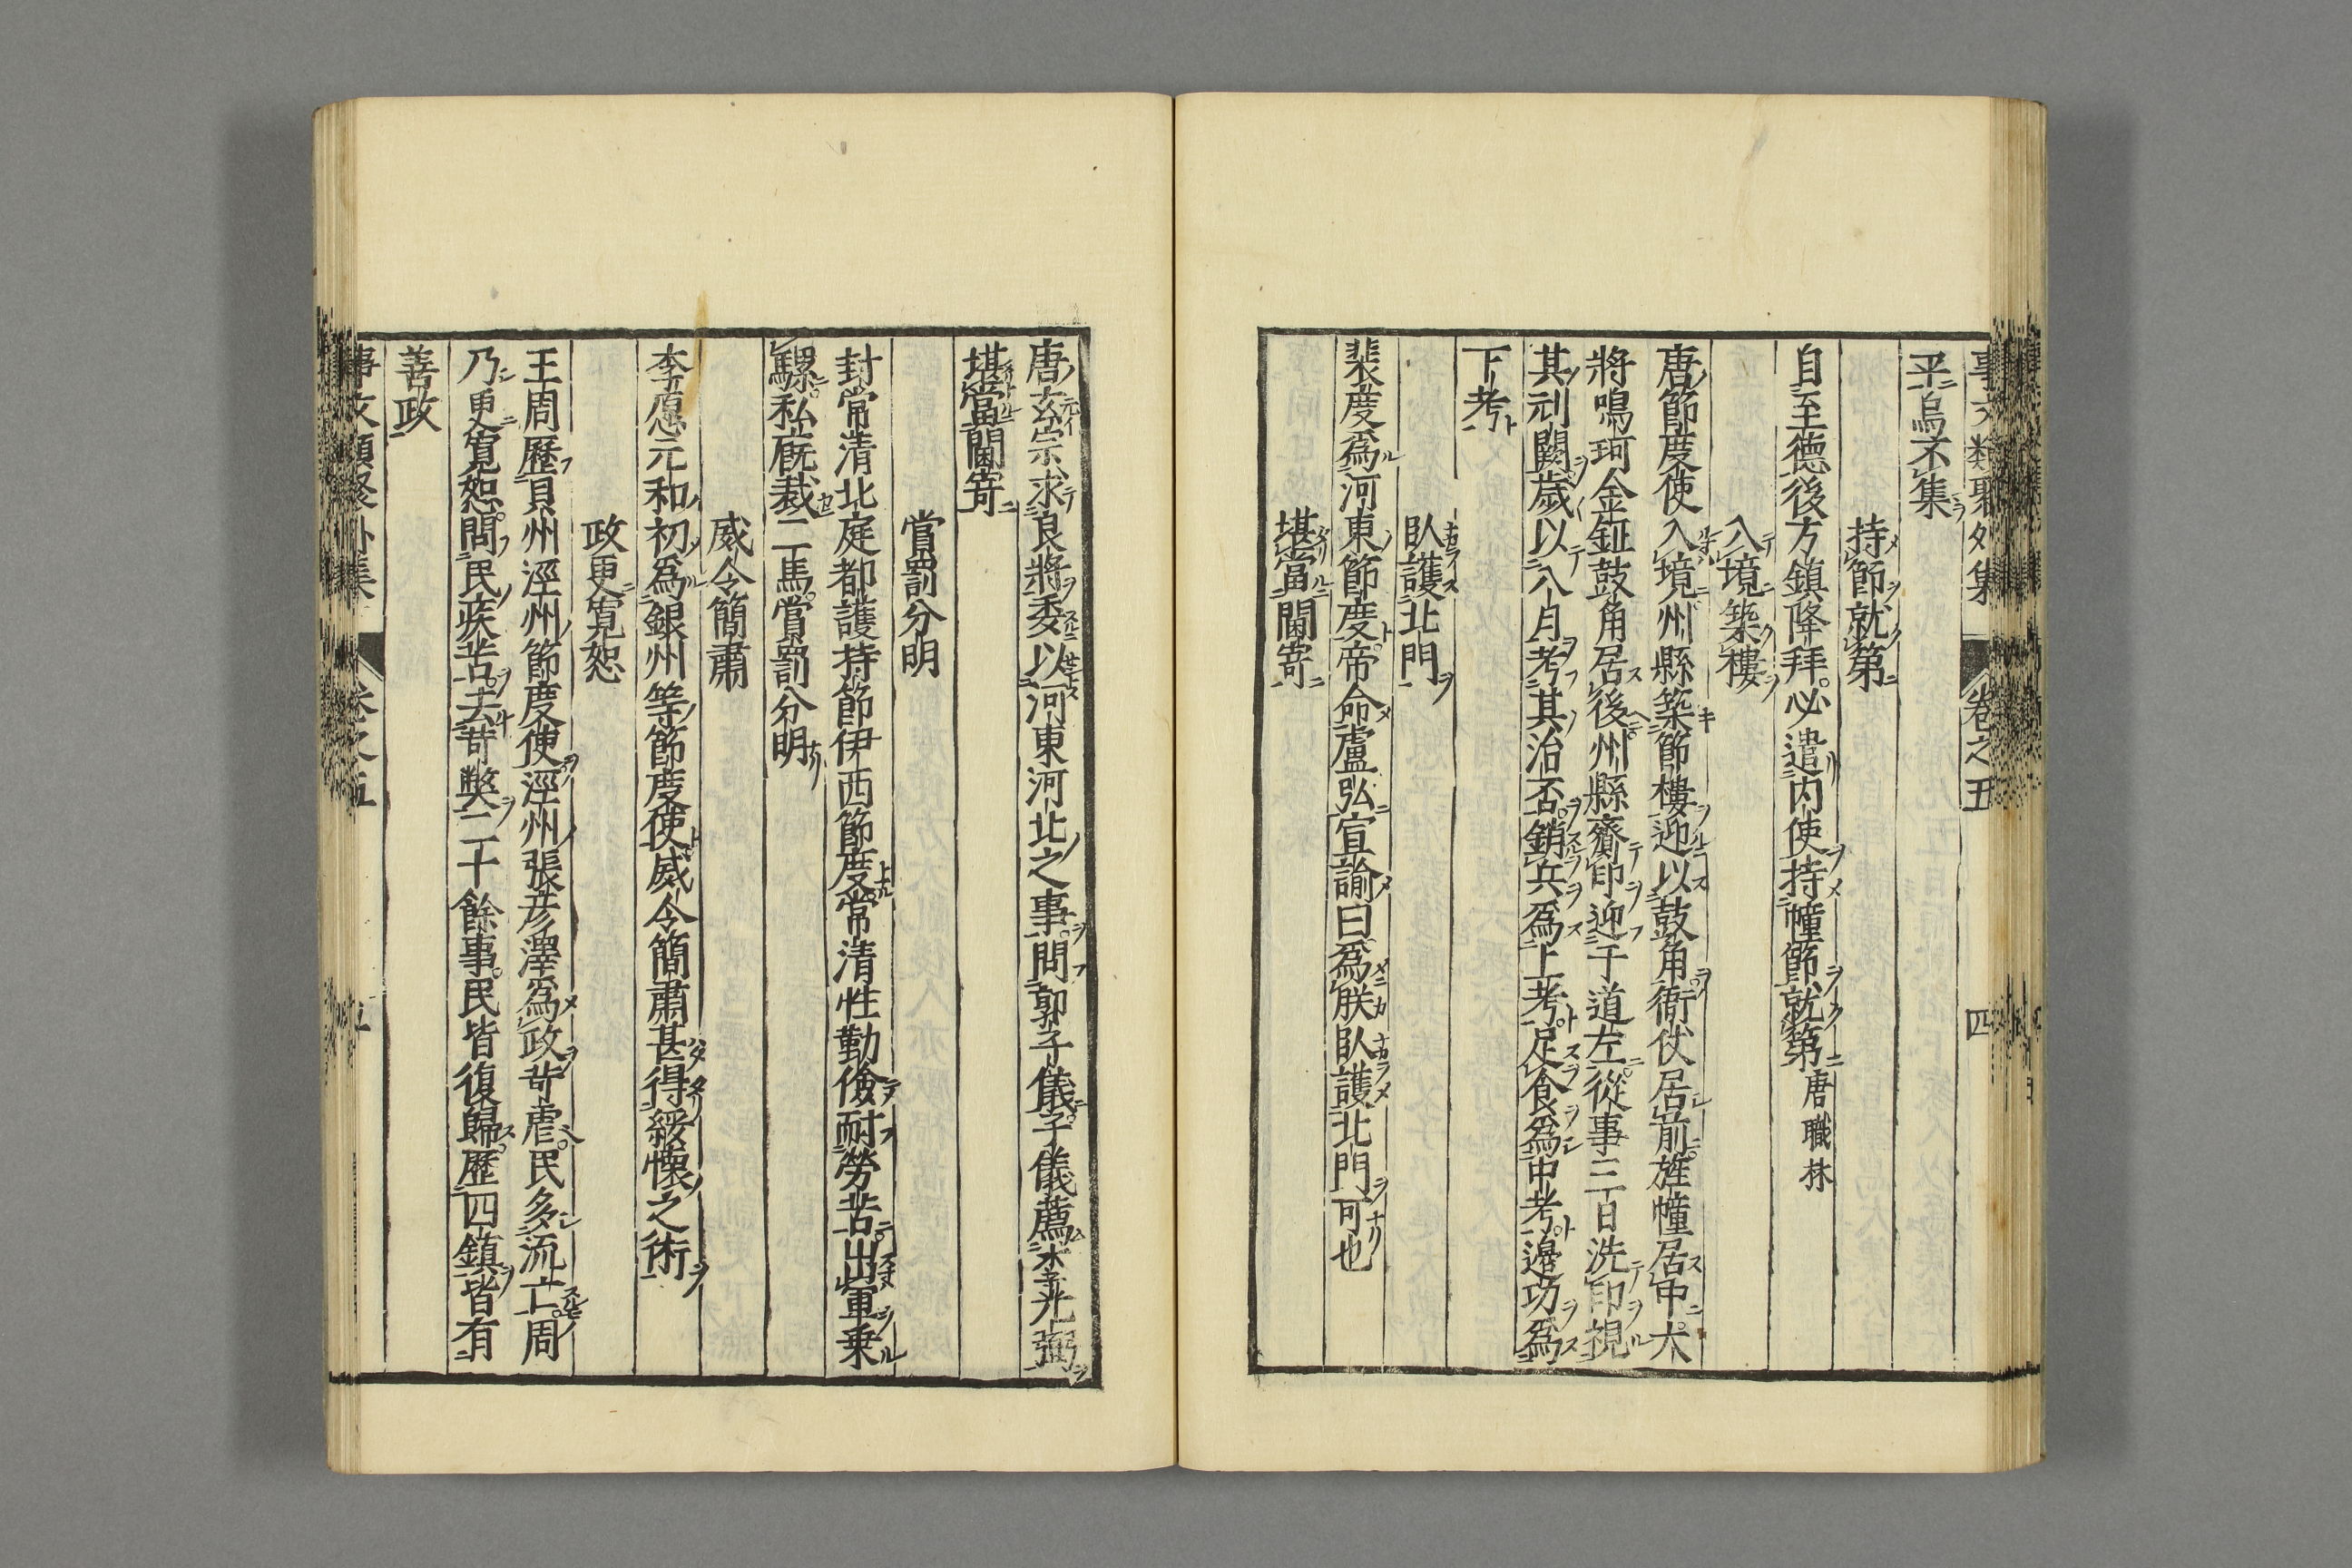 事文類聚外集 卷之五 四
平烏不集
持節就第
自至德後方鎮降拜必遣内使持幢節就第唐職林
入境築樓
唐節度使入境州縣築節樓迎以鼓角衙仗居前旌幢居中大
將鳴珂金鉦鼓角居後州縣齎印迎于道左從事三百洗印視
其刓闕歲以八月考其治否銷兵爲上考足食爲中考邊功爲
下考
臥護北門
裴度爲河東節度帝命盧弘宣諭曰爲朕臥護北門可也
堪當閫寄
唐玄宗求良將委以河東河北之事問郭子儀子儀薦李光弼
堪當閫寄
賞罰分明
封常清北庭都護持節伊西節度常清性勤儉耐勞苦出軍乗
騾私厩裁二馬賞罰分明
威令簡肅
李愿元和初爲銀州等節度使威令簡肅甚得綏懷之術
政更寛恕
王周歷貝州涇州節度使涇州張彦澤爲政苛虐民多流亡周
乃更寛恕問民疾苦去苛弊二十餘事民皆復歸歷四鎮皆有
善政
事文類聚外集 卷之五 五